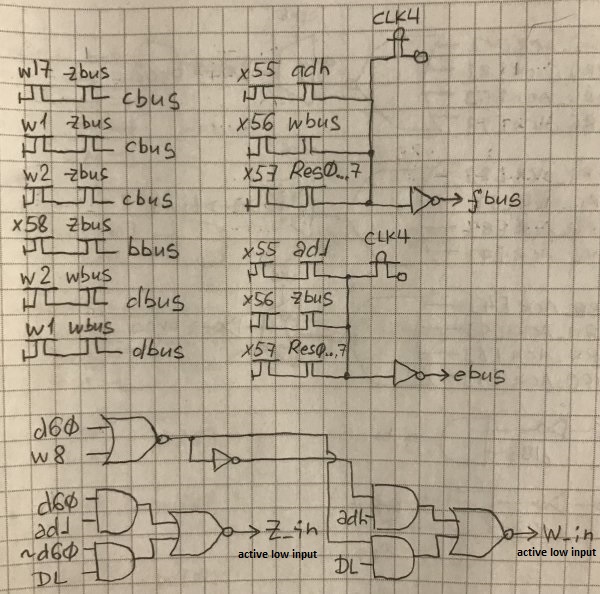 CLK4
w17 -zbus
cbus
w1 -zbus
cbus
w2 -zbus
cbus
x58 zbus
bbus
w2 wbus
dbus
w1 wbus
dbus
x55 adh
x56 wbus
x57 ResØ..7
fbus
CLK4
x55 adl
x56 zbus
x57 ResØ..7
ebus
d6Ø
w8
d6Ø
adl
~d6Ø
DL
Z_in
active low input
adh
DL
W_in
active low input